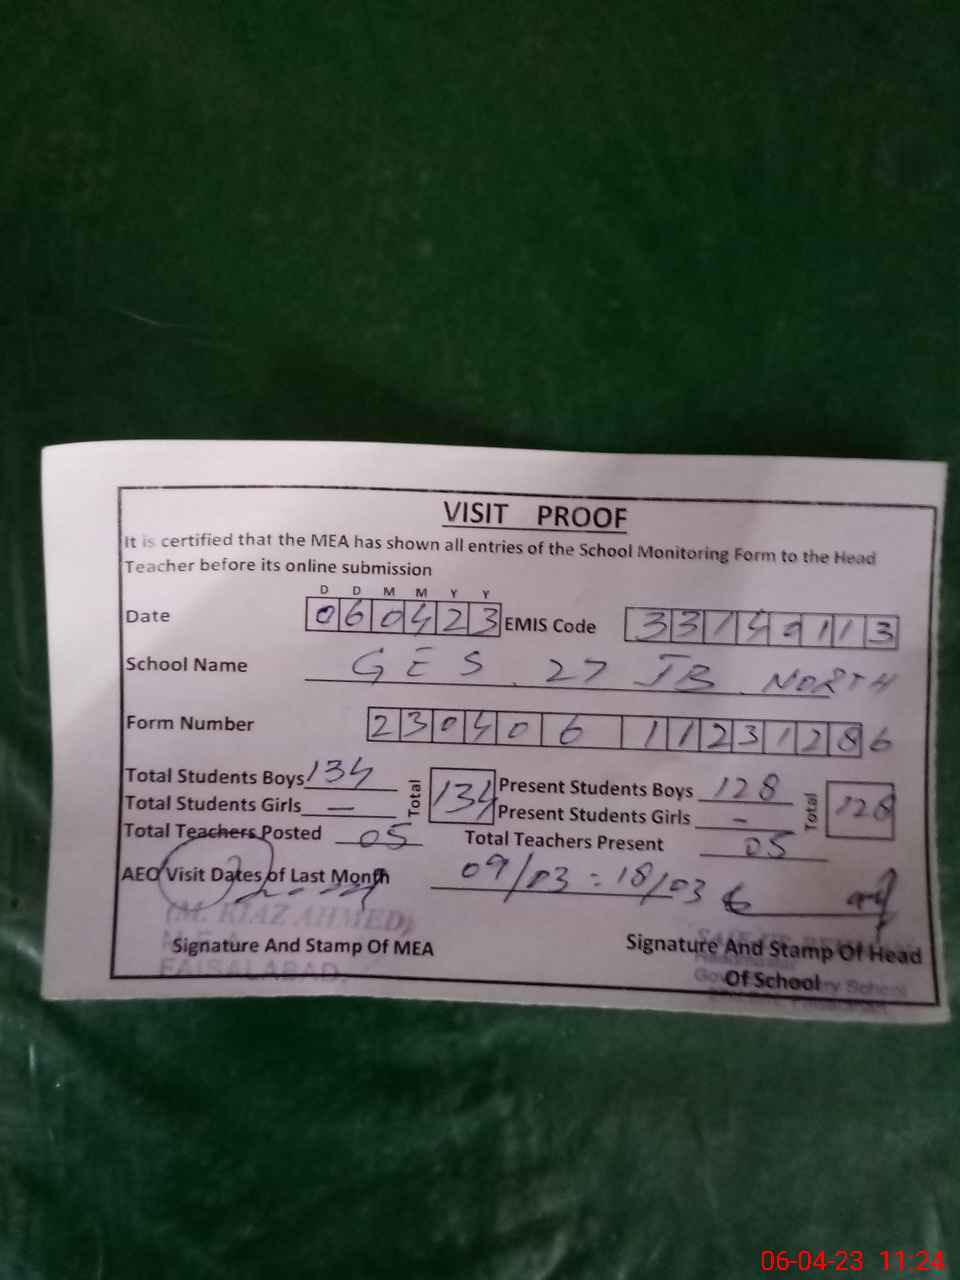 VISIT PROOF
It is certified that the MEA has shown all entries of the School Monitoring Form to the Head
Teacher before its online submission
D D M M Y Y
Date 060423 EMIS Code 33140113
School Name GES 27 JB NORTH
Form Number 23040611231286
Total Students Boys 134 Total 134 Present Students Boys 128 Total 128
Total Students Girls — Present Students Girls -
Total Teachers Posted 05 Total Teachers Present 05
AEO Visit Dates of Last Month 09/03 = 18/03
(M. RIAZ AHMED)
Signature And Stamp Of MEA Signature And Stamp Of Head
FAISALABAD. Of School
School
06-04-23 11:24